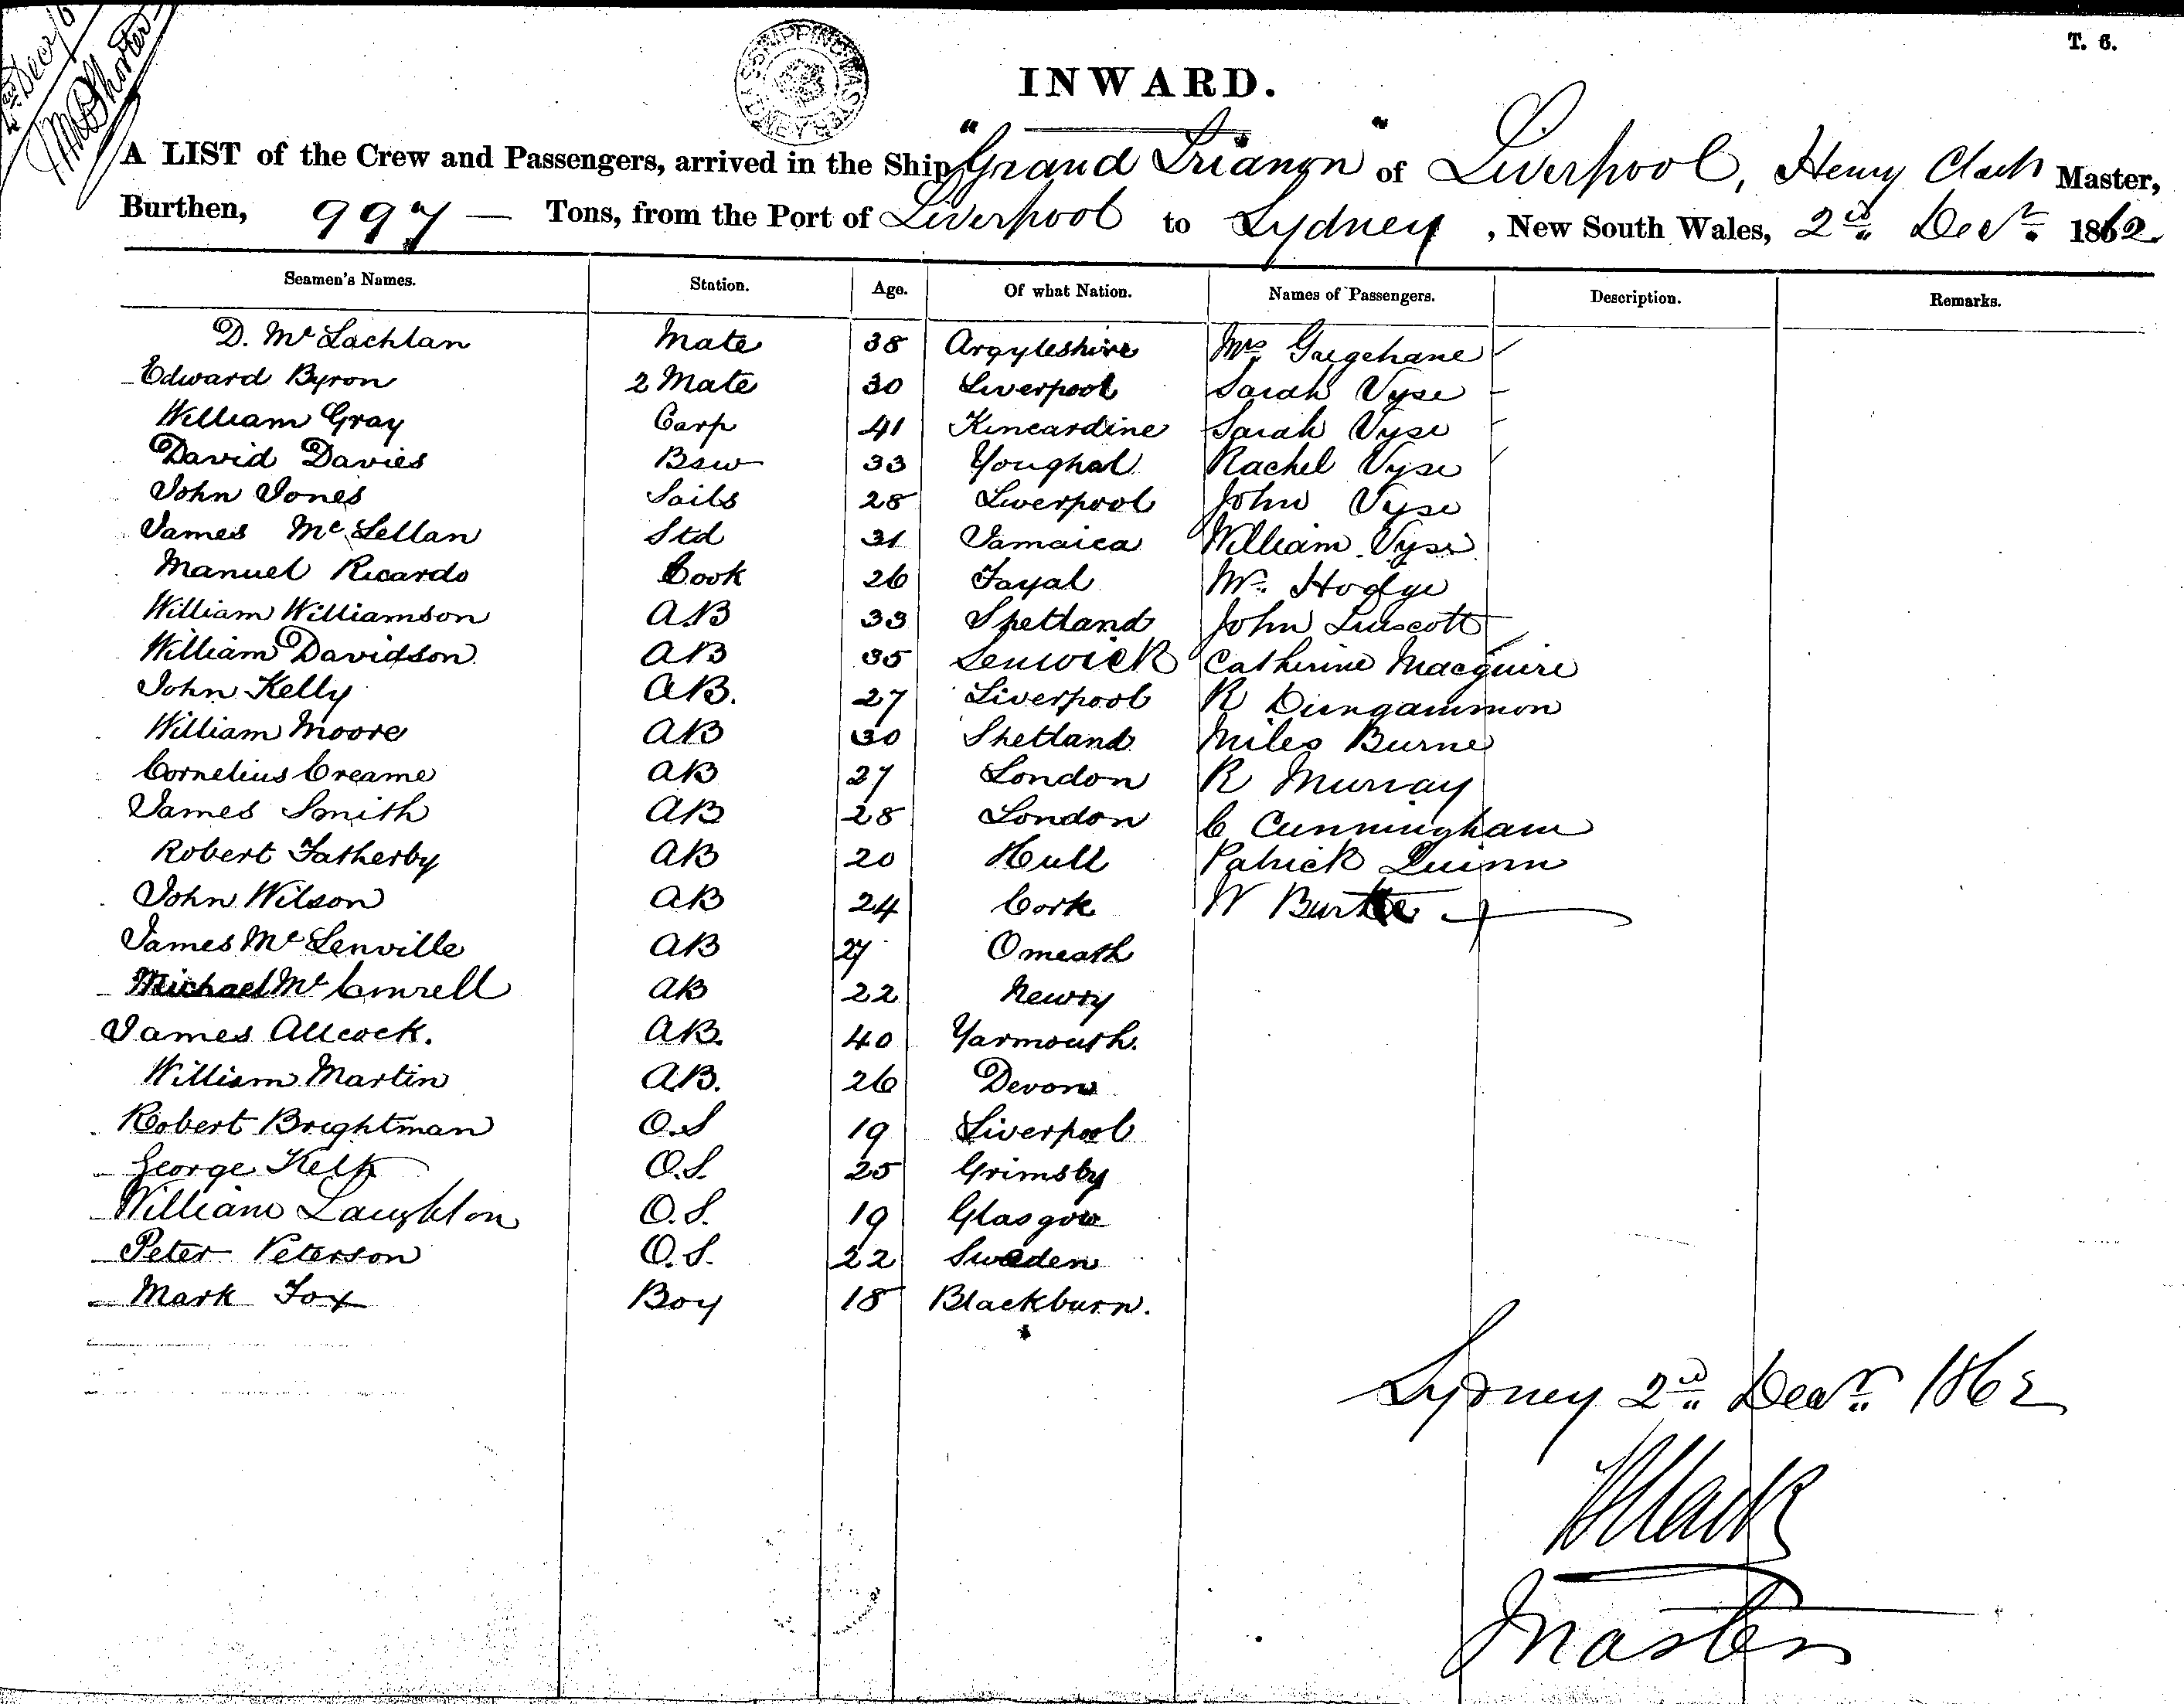 T. 6.
INWARD.
A LIST of the Crew and Passengers, arrived in the Ship "Grand Trianon" of Liverpool, Henry Clack Master,
Burthen, 997 — Tons, from the Port of Liverpool to Sydney, New South Wales, 2nd Decr. 1862
Seamen's Names. Station. Age. Of what Nation. Names of Passengers. Description. Remarks.
D. Mc Lachlan Mate 38 Argyleshire Mrs
Edward Byron 2 Mate 30 Liverpool Sarah Vyse
William Gray Carp 41 Kincardine Sarah Vyse
David Davies Bsw 33 Youghal Rachel Vyse
John Jones Sails 28 Liverpool John Vyse
James Mc Lellan Std 31 Jamaica William Vyse
Manuel Ricardo Cook 26 Fayal Hodge
William Williamson A.B 33 Shetland John Luscott
William Davidson AB 35 Lenwick Catherine Macguire
John Kelly AB. 27 Liverpool R Dungammon
William Moore AB 30 Shetland Miles Burne
Cornelius Creame AB 27 London R Murray
James Smith AB 28 London C Cunningham
Robert Fatherby AB 20 Hull Patrick Quinn
John Wilson AB 24 Cork W Burke
James Mc Lenville AB 27 Omeath
Michael Mc AB 22 Newry
James Allcock. AB. 40 Yarmouth.
William Martin AB. 26 Devon
Robert Brightman O.S 19 Liverpool
George Kelk O.S. 25 Grimsby
William Laughton O.S. 19 Glasgow
Peter Peterson O.S. 22 Sweden
Mark Fox Boy 18 Blackburn.
Sydney 2nd Decr. 1862
H Clack
Master